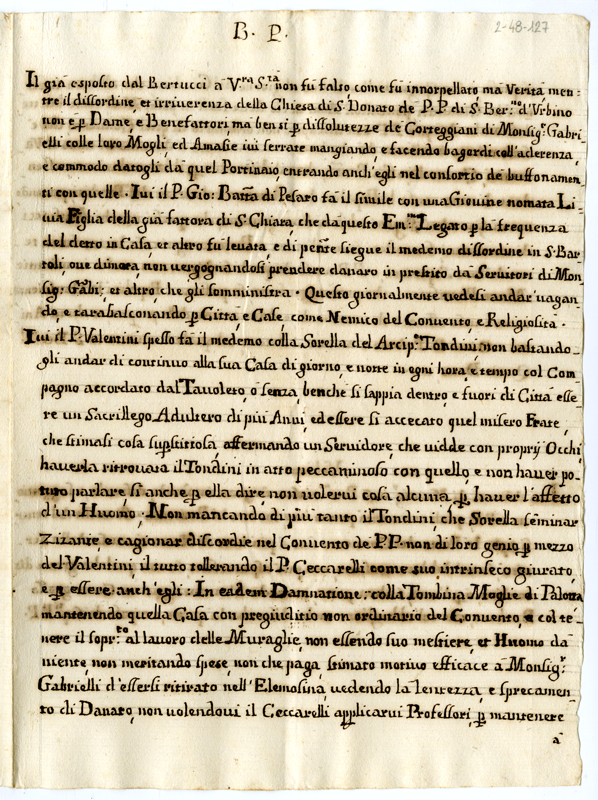 B. P.
2-48-127
Il già esposto dal Bertucci à V.ra S.tà non fù falso come fù innorpellato, ma Verità, men=
tre il dissordine, et irriverenza della Chiesa di S. Donato de P.P. di S. Ber.no d'Urbino
non è p Dame, e Benefattori, ma bensi p dissolutezze de Corteggiani di Monsig.r Gabri-
elli colle loro Mogli, ed Amasie ivi serrate mangiando, e facendo bagordi coll'aderenza,
e commodo datogli da quel Portinaio, entrando anch'egli nel consortio de buffonamen-
ti con quelle. Ivi il P. Gio: Batta di Pesaro fà il simile con una Giovine nomata Li-
via Figlia della già fattora di S. Chiara, che da questo Em.mo Legato p la frequenza
del detto in Casa et altro fù levata, e di pente siegue il medemo dissordine in S. Bar
toli, ove dimora, non vergognandosi prendere danaro in prestito da Servitori di Mon-
sig.r Gabi; et altro, che gli somministra. Questo giornalmente vedesi andar vagan-
do, e tarabasconando p Città, e Case come Nemico del Convento, e Religiosità.
Ivi il P. Valentini spesso fà il medemo colla Sorella del Arcip.te Tondini, non bastando-
gli andar di continuo alla sua Casa di giorno, e notte in ogni hora, e tempo col Com-
pagno accordato dal Tavoleto, ò senza, benche si sappia dentro, e fuori di Città esse-
re un Sacrillego Adultero di più Anni, ed essere si accecato quel misero Frate,
che stimasi cosa supstitiosa, affermando un Servidore, che vidde con proprij Occhi,
haverla ritrovata il Tondini in atto peccaminoso con quello, e non haver po-
tuto parlare, si anche p ella dire, non volervi cosa alcuna, p haver l'affetto
d'un Huomo. Non mancando di più tanto il Tondini, che Sorella seminar
Zizanie, e cagionar discordie nel Convento de P.P. non di loro genio, p mezzo
del Valentini, il tutto tollerando il P. Ceccarelli come suo intrinseco giurato,
e p essere anch'egli: In eadem Damnatione: colla Tombina Moglie di Palotta
mantenendo quella Casa con pregiuditio non ordinario del Convento, e col te-
nere il sopr.to al lavoro delle Muraglie, non essendo suo mestiere, et Huomo da
niente, non meritando spese, non che paga, stimato motivo efficace a Monsig.r
Gabrielli d'essersi ritirato nell'Elemosina, vedendo la lentezza, e sprecamen-
to di Danaro, non volendovi il Ceccarelli applicarvi Professori, p mantenere
à